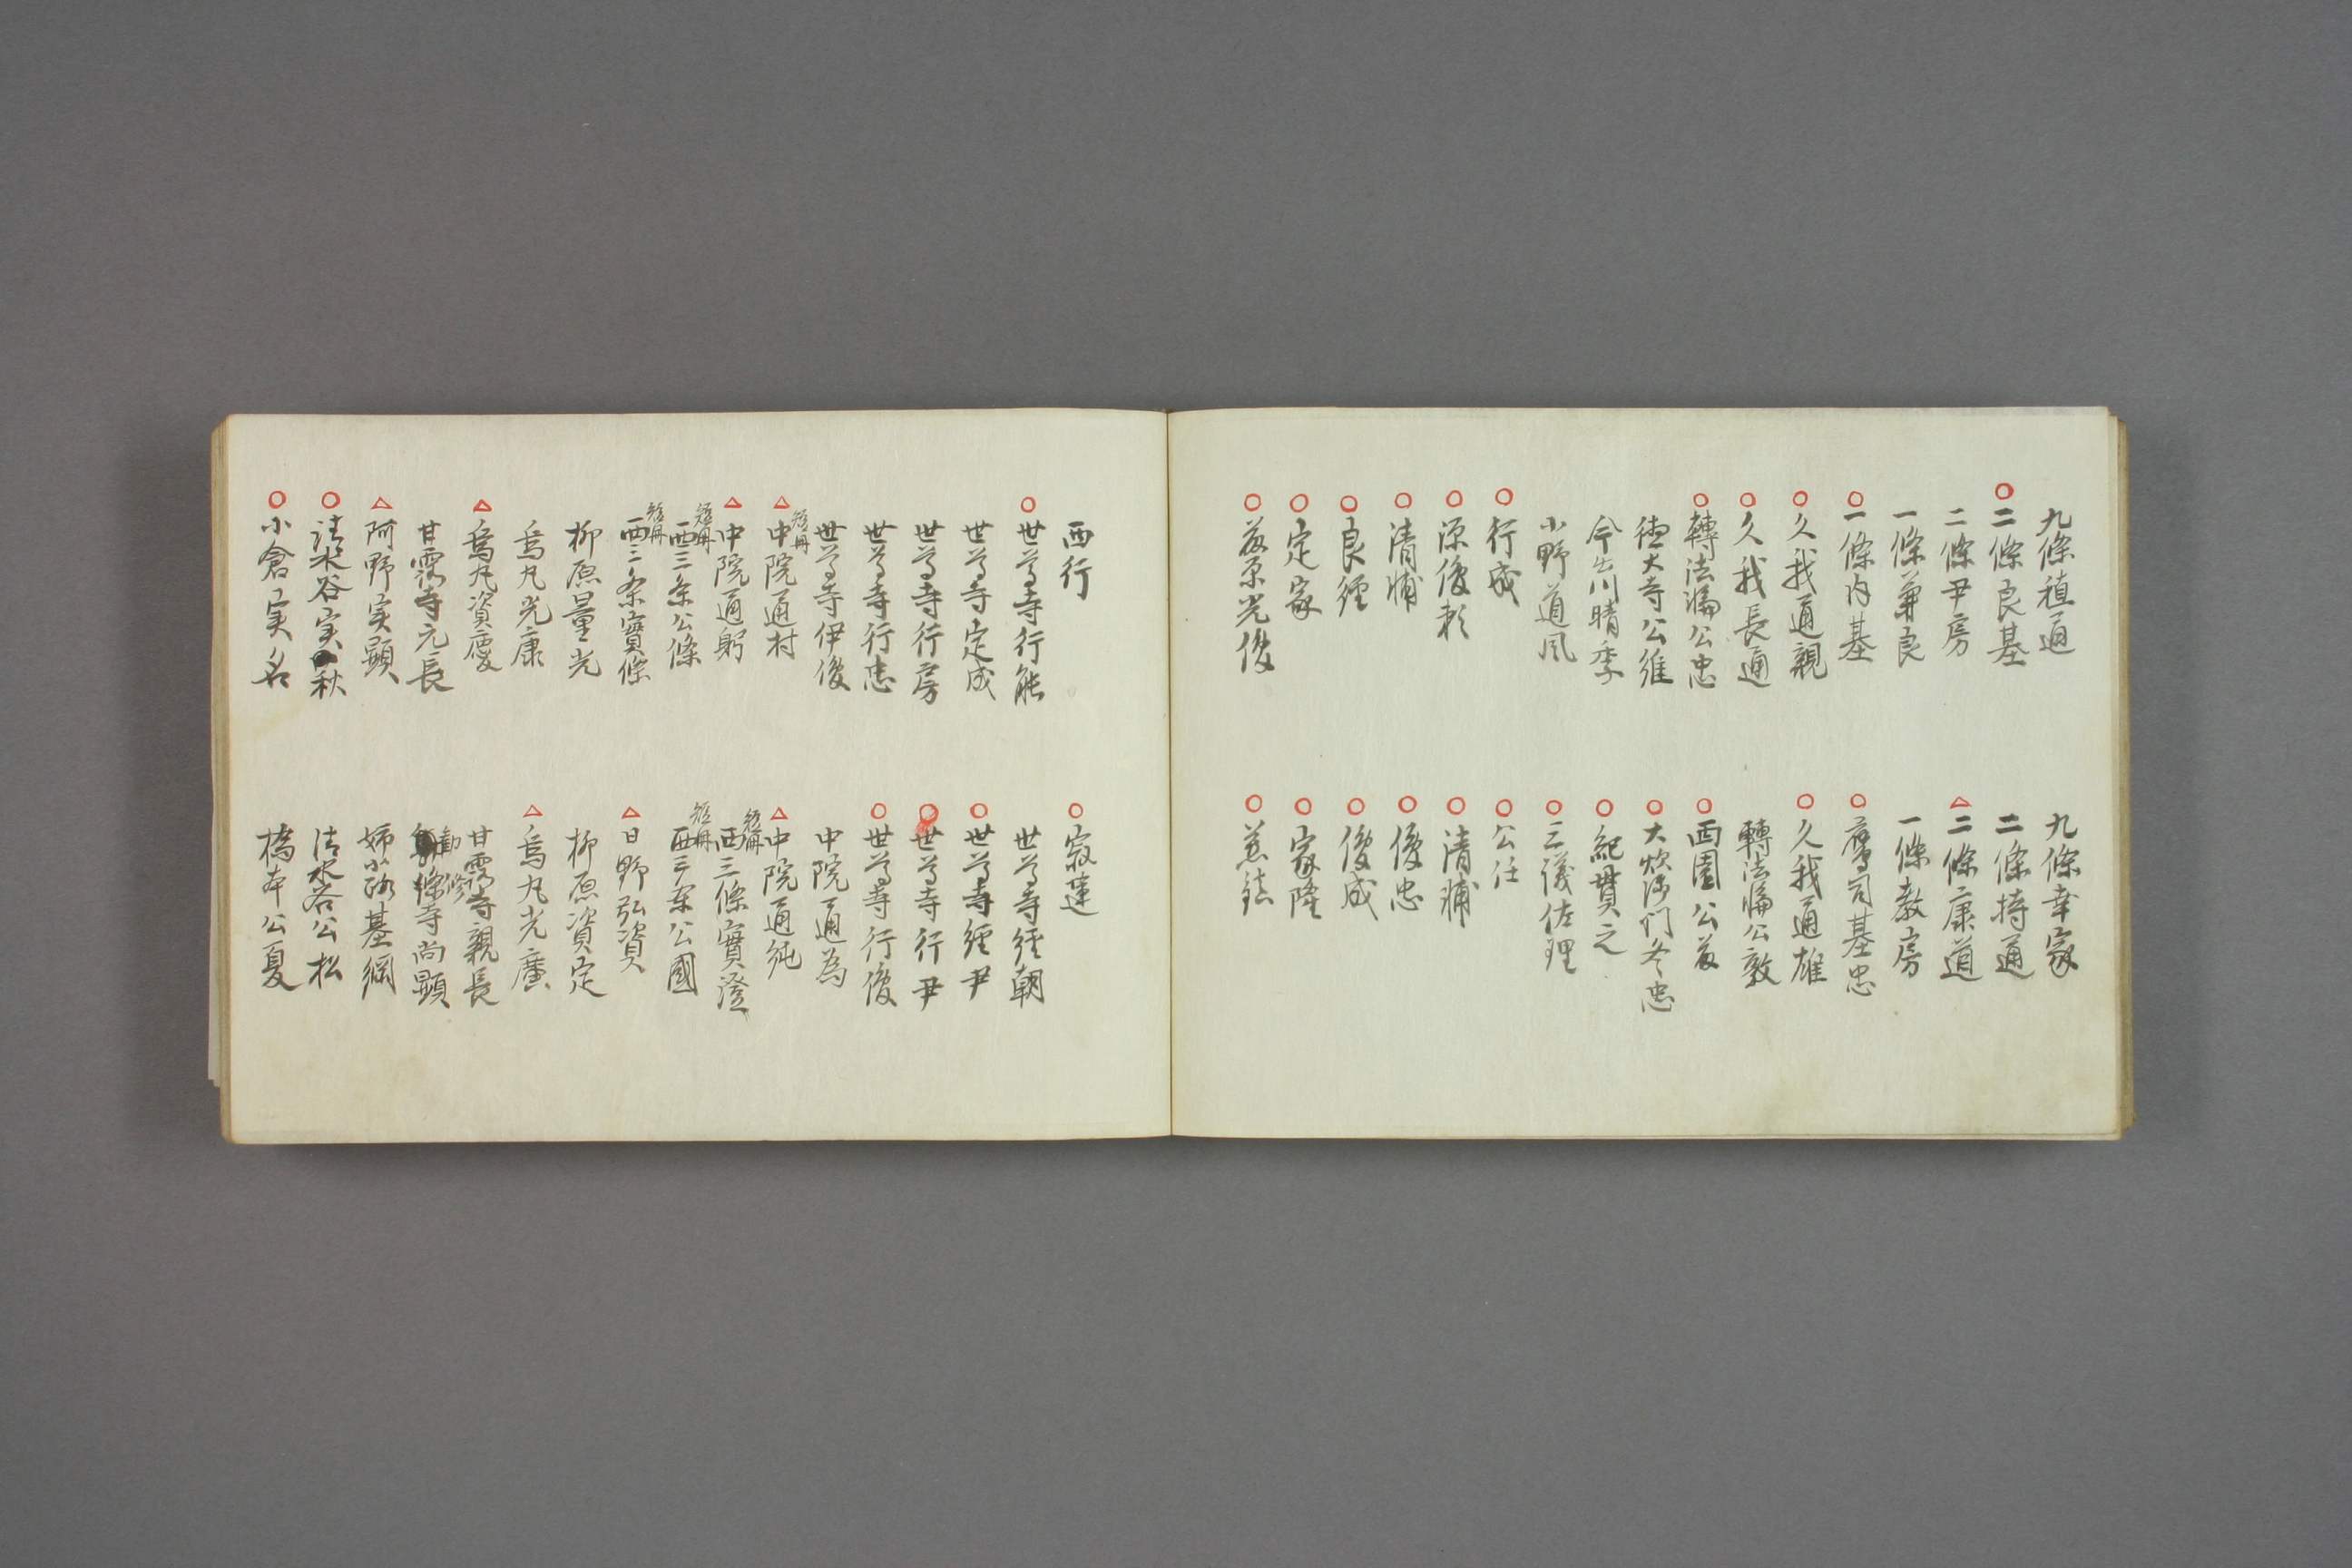 九條稙通
○二條良基
二條尹房
一條兼良
○一條内基
○久我通親
○久我長通
○轉法輪公忠
徳大寺公維
今出川晴季
小野道風
○行成
○源俊頼
○清輔
○良經
○定家
○藤原光俊
九條幸家
二條持通
△二條康道
一條教房
○鷹司基忠
○久我通雄
轉法輪公敦
○西園公藤
○大炊御门冬忠
○紀貫之
○三儀佐理
○公任
○清輔
○俊忠
○俊成
○家隆
○慈鎮
西行
○世尊寺行能
世尊寺定成
世尊寺行房
世尊寺行忠
世尊寺伊俊
△中院通村 短冊
△中院通躬
西三条公條 短冊
西三条實條 短冊
柳原量光
烏丸光康
△烏丸資慶
甘露寺元長
△阿野实顕
○清水谷实秋
○小倉実名
○寂蓮
世尊寺經朝
○世尊寺經尹
○世尊寺行尹
○世尊寺行俊
中院通為
△中院通純
西三條實澄 短冊
西三条公國 短冊
△日野弘資
柳原資定
△烏丸光廣
甘露寺親長
勧修寺尚顕
姉小路基綱
清水谷公松
橋本公夏